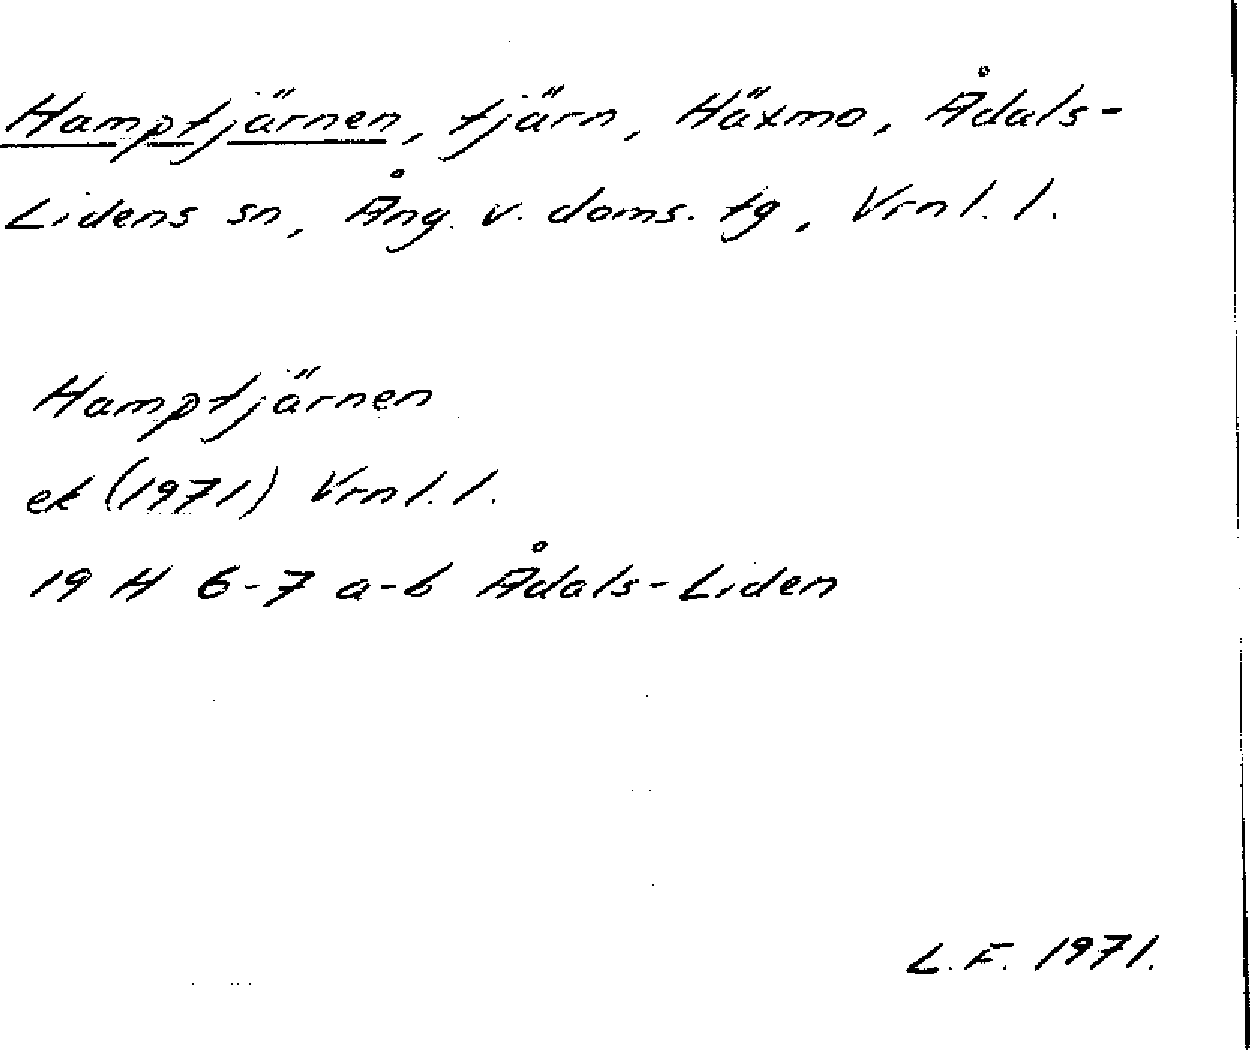 Hamptjärnen, tjärn, Häxmo, Ådals-
Lidens sn, Ång. v. doms. tg, Vrnl. l.
Hamptjärnen
ek (1971) Vrnl. l.
19 H 6-7 a-b Ådals-Liden
L.F. 1971.